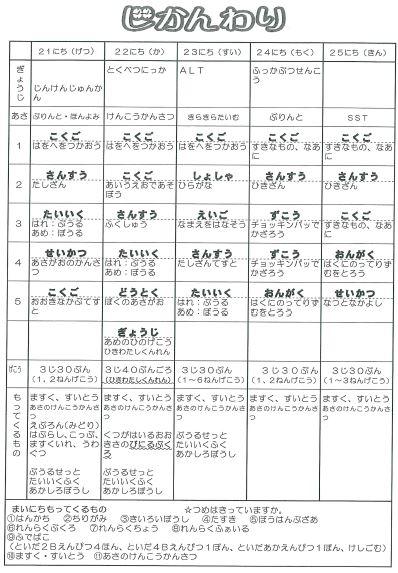 じかんわり
21にち（げつ） 22にち（か） 23にち（すい） 24にち（もく） 25にち（きん）
ぎょうじ じんけんじゅんかん とくべつにっか ALT ふっかぶつせんこう
あさ ぷりんと・ほんよみ けんこうかんさつ きらきらたいむ ぷりんと SST
1 こくご こくご こくご こくご こくご
はをへをつかおう はをへをつかおう はをへをつかおう すきなもの、なあに すきなもの、なあに
2 さんすう こくご しょしゃ さんすう さんすう
たしざん あいうえおであそぼう ひらがな ひきざん ひきざん
3 たいいく さんすう えいご ずこう こくご
はれ：ぷうる あめ：ぷうる ふくしゅう なまえをはなそう チョッキンパッでかざろう すきなもの、なあに
4 せいかつ たいいく さんすう ずこう おんがく
あさがおのかんさつ はれ：ぷうる あめ：ぷうる たしざんてすと チョッキンパッでかざろう はくにのってりずむをとろう
5 こくご どうとく たいいく おんがく せいかつ
おおきなかぶてすと ぼくのあさがお はれ：ぷうる あめ：ぷうる はくにのってりずむをとろう なつとなかよし
ぎょうじ
あめのひのげこう
ひきわたしくんれん
げこう 3じ30ぷん 3じ40ぷんごろ 3じ30ぷん 3じ30ぷん 3じ30ぷん
（1，2ねんげこう） （ひきわたしくんれん） （1～6ねんげこう） （1，2ねんげこう） （1～3ねんげこう）
もってくるもの
ますく、すいとう
あさのけんこうかんさつ
えぷろん（みどり）
はぶらし、こっぷ、ますくいれ、うわぐつ
ぷうるせっと
たいいくふく
あかしろぼうし
ますく、すいとう
あさのけんこうかんさつ
くつがはいるおおきさのびにるぶくろ
ぷうるせっと
たいいくふく
あかしろぼうし
ますく、すいとう
あさのけんこうかんさつ
ぷうるせっと
たいいくふく
あかしろぼうし
ますく、すいとう
あさのけんこうかんさつ
ますく、すいとう
あさのけんこうかんさつ
まいにちもってくるもの ☆つめはきっていますか。
①はんかち ②ちりがみ ③きいろいぼうし ④たすき ⑤ぼうはんぶざあ
⑥れんらくぶくろ ⑦れんらくちょう ⑧れんらくふぁいる
⑨ふでばこ
（といだ2Bえんぴつ4ほん、といだ4Bえんぴつ1ぽん、といだあかえんぴつ1ぽん、けしごむ）
⑩ますく・すいとう ⑪あさのけんこうかんさつ